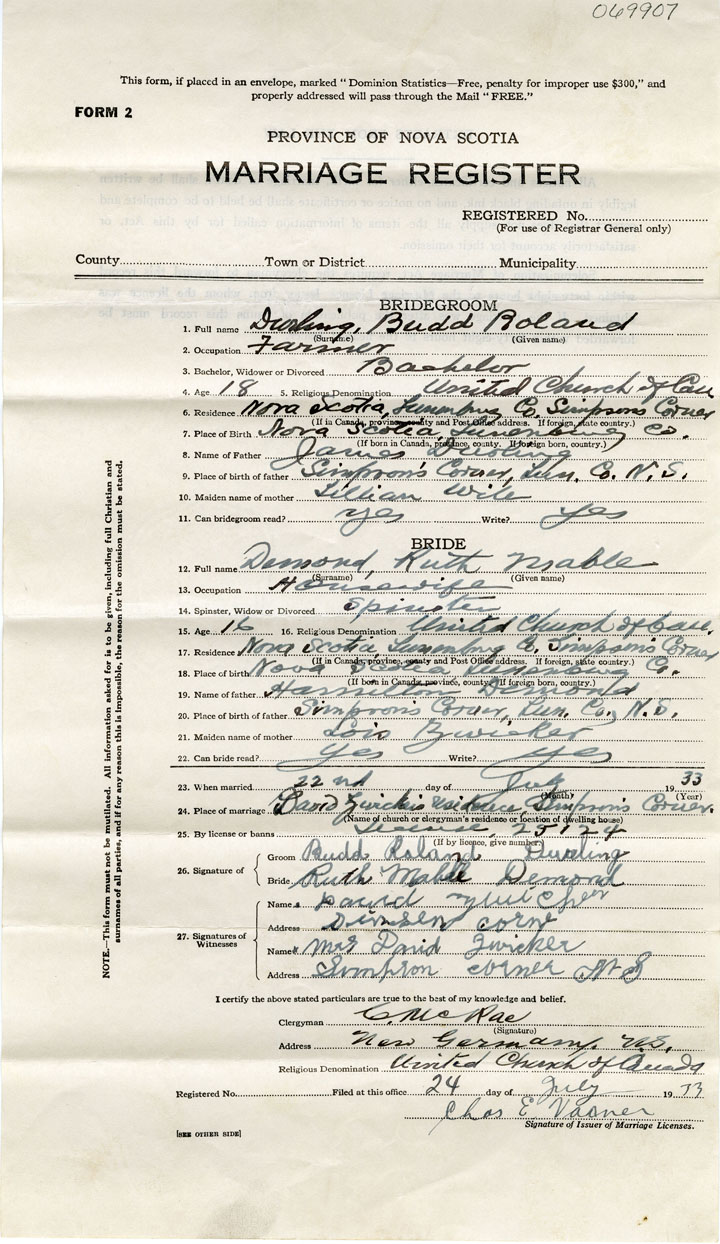 069907
This form, if placed in an envelope, marked "Dominion Statistics—Free, penalty for improper use $300," and
properly addressed will pass through the Mail "FREE."
FORM 2
PROVINCE OF NOVA SCOTIA
MARRIAGE REGISTER
REGISTERED No.
(For use of Registrar General only)
County Town or District Municipality
BRIDEGROOM
1. Full name Durling, Budd Roland
(Surname) (Given name)
2. Occupation Farmer
3. Bachelor, Widower or Divorced Bachelor
4. Age 18 5. Religious Denomination United Church of Can
6. Residence Nova Scotia, Lunenburg Co. Simpson's Corner
(If in Canada, province, county and Post Office address. If foreign, state country.)
7. Place of Birth Nova Scotia, Lunenburg Co.
(If born in Canada, province, county. If foreign born, country.)
8. Name of Father James Durling
9. Place of birth of father Simpson's Corner, Lun. Co. N. S.
10. Maiden name of mother Lillian Wile
11. Can bridegroom read? yes Write? yes
BRIDE
12. Full name Demond, Ruth Mable
(Surname) (Given name)
13. Occupation Housewife
14. Spinster, Widow or Divorced Spinster
15. Age 16 16. Religious Denomination United Church of Can.
17. Residence Nova Scotia, Lunenburg Co. Simpson's Corner
(If in Canada, province, county and Post Office address. If foreign, state country.)
18. Place of birth Nova Scotia Lunenburg Co.
(If born in Canada, province, county. If foreign born, country.)
19. Name of father Hamilton Demond
20. Place of birth of father Simpson's Corner, Lun. Co. N. S.
21. Maiden name of mother Lois Zwicker
22. Can bride read? yes Write? yes
23. When married 22nd day of July 19 33
(Month) (Year)
24. Place of marriage David Zwicker's residence, Simpson's Corner.
(Name of church or clergyman's residence or location of dwelling house)
25. By license or banns License, 25124
(If by licence, give number)
26. Signature of
Groom Budd Roland Durling
Bride Ruth Mable Demond
27. Signatures of Witnesses
Name David
Address
Name Mrs David Zwicker
Address Simpson corner N S
NOTE.—This form must not be mutilated. All information asked for is to be given, including full Christian and
surnames of all parties, and if for any reason this is impossible, the reason for the omission must be stated.
I certify the above stated particulars are true to the best of my knowledge and belief.
Clergyman C. McRae
(Signature)
Address New Germany, N.S.
Religious Denomination United Church of Canada
Registered No. Filed at this office 24 day of July 19 33
Chas E.
Signature of Issuer of Marriage Licenses.
[SEE OTHER SIDE]